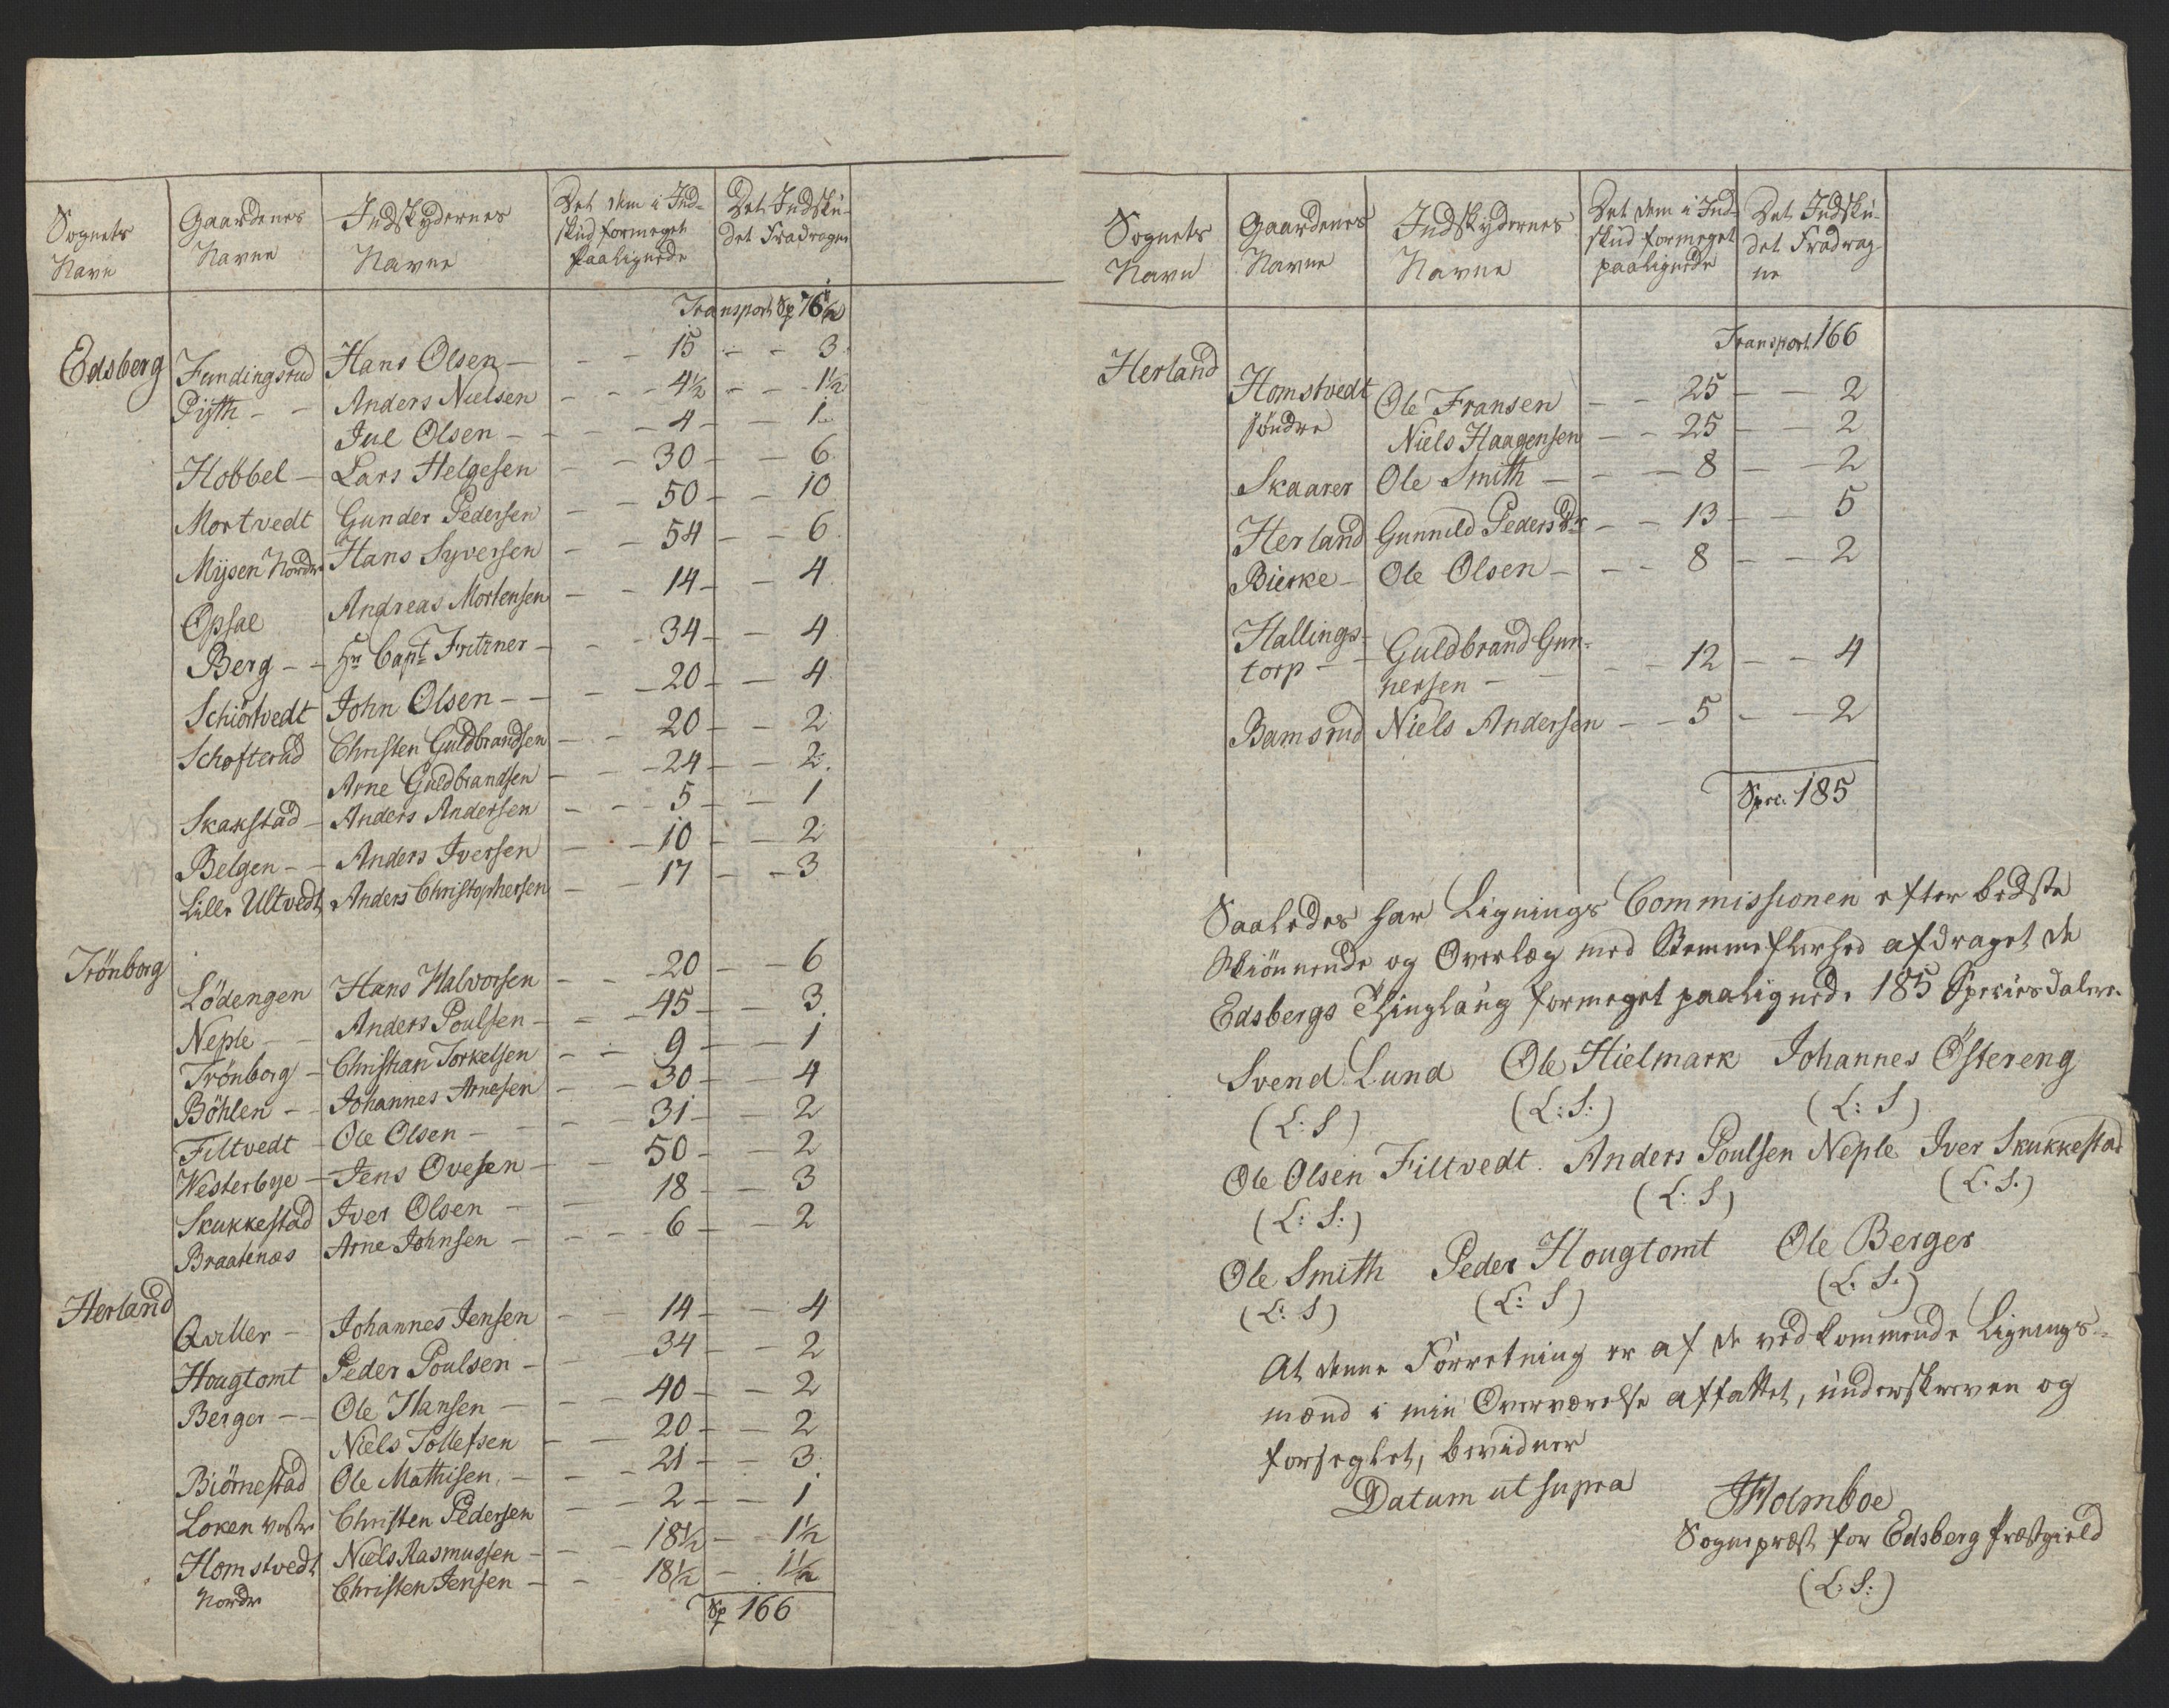 Sognets Navn | Gaardenes Navne | Indskydernes Navne | Det dem i Ind-skud formeget paalignede | Det Indsku-det Fradragne
Transport Sp 76½
Edsberg | Fundingsrud | Hans Olsen | 15 | 3
Pijth | Anders Nielsen | 4½ | 1½
Jul Olsen | 4 | 1
Hobbel | Lars Helgesen | 30 | 6
Mortvedt | Gunder Pedersen | 50 | 10
Mijsen Nordre | Hans Syversen | 54 | 6
Opsal | Andreas Mortensen | 14 | 4
Berg | Hr Capt Fritzner | 34 | 4
Schiörtvedt | John Olsen | 20 | 4
Schofterud | Christen Guldbrandsen | 20 | 2
Arne Guldbrandsen | 24 | 2
Skakstad | Anders Andersen | 5 | 1
Belgen | Anders Iversen | 10 | 2
Lille Ultvedt | Anders Christophersen | 17 | 3
Trönborg | Lödengen | Hans Halvorsen | 20 | 6
Neple | Anders Poulsen | 45 | 3
Trönborg | Christian Torkelsen | 9 | 1
Böhlen | Johannes Arnesen | 30 | 4
Filtvedt | Ole Olsen | 31 | 2
Westerbye | Jens Ovesen | 50 | 2
Skukkestad | Iver Olsen | 18 | 3
Braatenæs | Arne Johnsen | 6 | 2
Herland | Qviller | Johannes Jensen | 14 | 4
Hougtomt | Peder Poulsen | 34 | 2
Berger | Ole Hansen | 40 | 2
Niels Tollefsen | 20 | 2
Biörnestad | Ole Mathisen | 21 | 3
Loken vestr | Christen Pedersen | 2 | 1
Homstvedt | Niels Rasmussen | 18½ | 1½
Nordr | Christen Jensen | 18½ | 1½
Sp 166
Sognets Navn | Gaardenes Navne | Indskydernes Navne | Det dem i Ind-skud formeget paalignede | Det Indsku-det Fradrag-ne
Transport 166
Herland | Homstvedt | Ole Fransen | 25 | 2
söndre | Niels Haagensen | 25 | 2
Skaarer | Ole Smith | 8 | 2
Herland | Gunnild Pedersdr | 13 | 5
Bierke | Ole Olsen | 8 | 2
Hallings-
torp | Guldbrand Gun-
nersen | 12 | 4
Bamsrud | Niels Andersen | 5 | 2
Spec. 185
Saaledes har Lignings Commissionen efter bedste
Skiönnende og Overlæg med Stemmeflerhed afdraget de
Edsbergs Thinglaug formeget paalignede 185 Speciesdaler.
Svend Lund Ole Hielmark Johannes Östereng
(L: S) (L: S:) (L: S)
Ole Olsen Filtvedt. Anders Poulsen Neple Iver Skukkestad
(L: S:) (L: S) (L: S.)
Ole Smith Peder Hougtomt Ole Berger
(L: S) (L: S) (L: S.)
At denne Forretning er af de vedkommende Lignings-
mænd i min Overværelse affattet, underskreven og
forseglet, bevidner
Datum ut supra
JHolmboe
Sognepræst for Edsberg Præstgield
(L: S:)